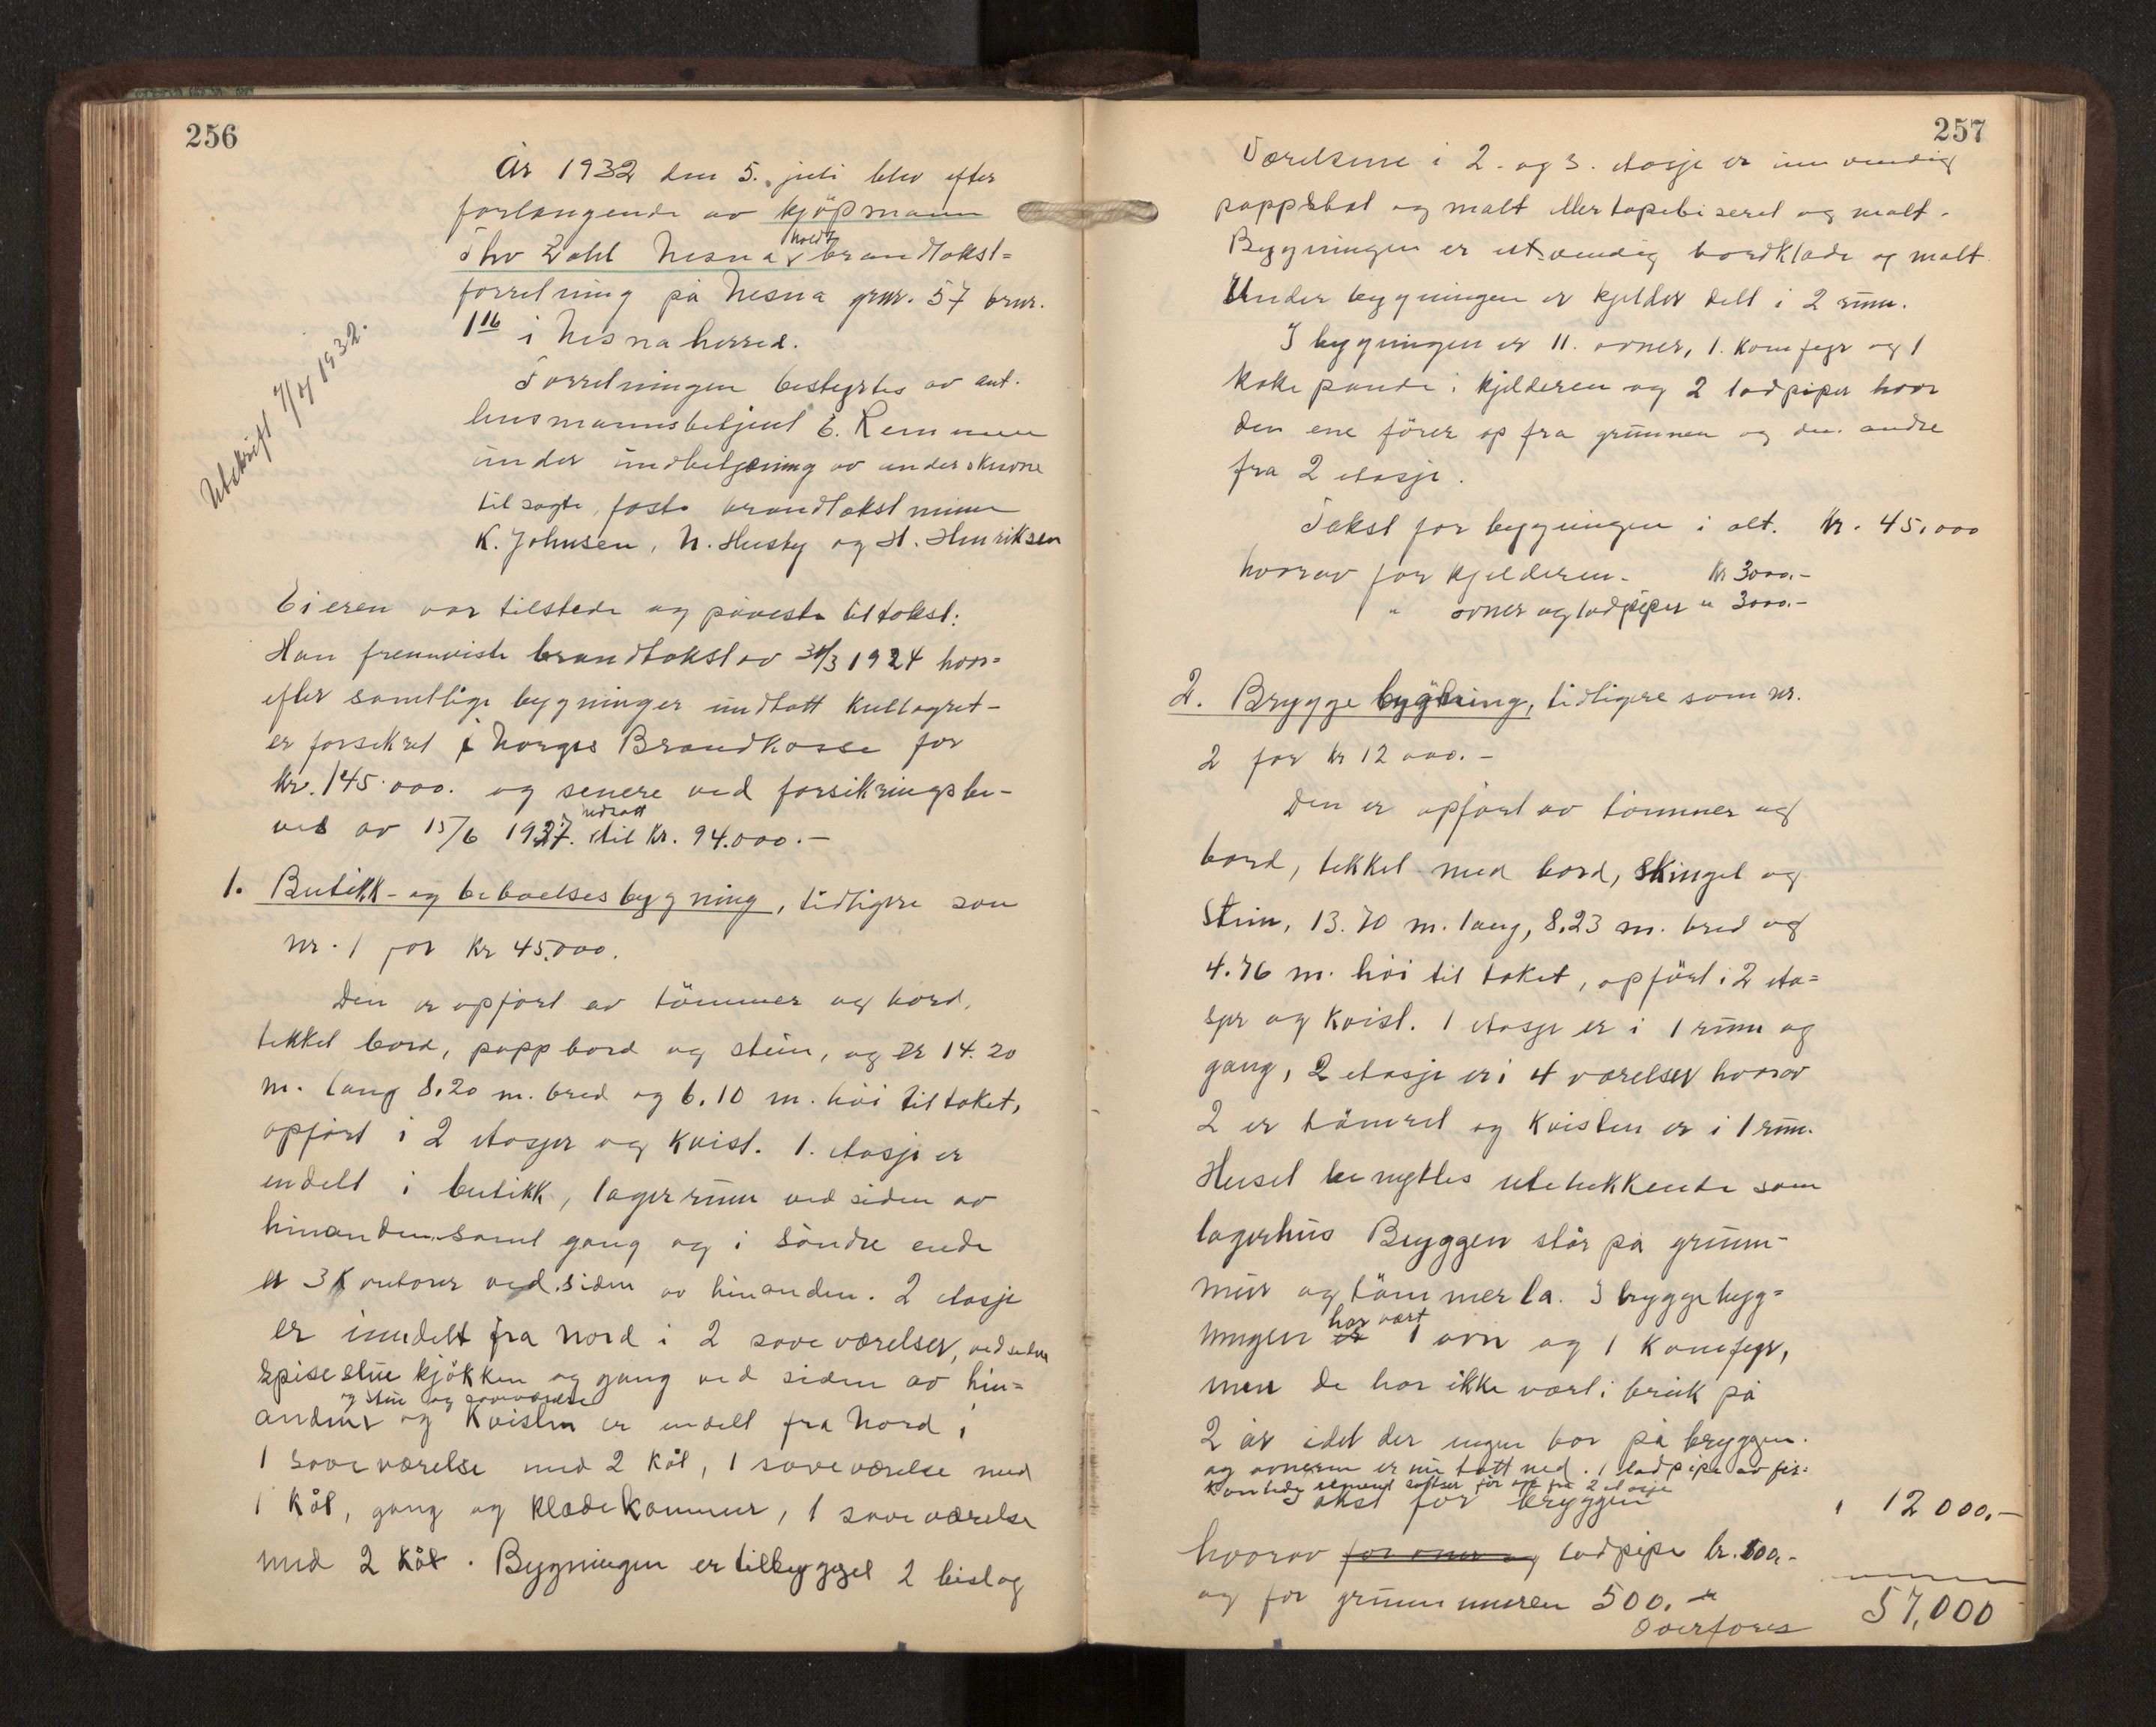 256
År 1932 den 5. juli blev efter
forlangende av kjöpmann
Thv Zahl Nesna holdt brandtakst=
forretning på Nesna grnr. 57 brnr.
116 i Nesna herred.
Utskrift 7/7 1932.
Forretningen bestyrtes av aut.
lensmannsbetjent E. Remmen
under indbetjening av underskrevne
tilsagte faste brandtakstmenn
K. Johnsen, N. Husby og H. Henriksen
Eieren var tilstede og påviste til takst:
Han fremviste brandtakst av 31/3 1924 hvor=
efter samtlige bygninger undtatt kullagret -
er forsikret i Norges Brandkasse for
kr. 145.000. og senere ved forsikringsbe-
vis av 15/6 1927. nedsatt til kr. 94.000.-
1. Butikk- og beboelsesbygning, tidligere som
nr. 1 for kr 45.000.
Den er opført av tömmer og bord,
tekket bord, papp bord og stein, og er 14.20
m. lang 8.20 m. bred og 6.10 m. höi til taket,
opført i 2 etasjer og kvist. 1. etasje er
inndelt i butikk, lagerrum ved siden av
hinanden samt gang og i söndre ende
er 3 kontorer ved siden av hinanden. 2 etasje
er inndelt fra nord i 2 soveværelser, ved siden
spisestue kjökken og gang ved siden av hin=
anden og stue og soveværelse og Kvisten er inndelt fra Nord i
1 soveværelse med 2 kôt, 1 soveværelse med
1 kôt, gang og klædekammer, 1 soveværelse
med 2 kôt. Bygningen er tilbygget 2 bislag
257
Værelsene i 2. og 3. etasje er innvendig
pappstat og malt eller tapetiseret og malt.
Bygningen er utvendig bordklædt og malt.
Under bygningen er kjelder delt i 2 rum.
I bygningen er 11. ovner, 1. komfyr og 1
kokepande i kjelderen og 2 lodpiper hvor
den ene fører op fra grunnen og den andre
fra 2 etasje.
Takst for bygningen i alt. kr. 45.000
hvorav for kjelderen - kr 3000.-
" ovner og lodpiper " 3000.-
2. Bryggebygning, tidligere som nr.
2 for kr 12000.-
Den er opført av tömmer og
bord, tekket med bord, skingel og
stein, 13.70 m. lang, 8.23 m. bred og
4.76 m. höi til taket, opført i 2 eta=
sjer og kvist. 1 etasje er i 1 rum og
gang, 2 etasje er i 4 værelser hvorav
2 er tömret og kvisten er i 1 rum.
Huset benyttes utelukkende som
lagerhus Bryggen står på grunn-
mur og tömmerla. I bryggebyg=
ningen er har vært 1 ovn og 1 komfyr,
men de har ikke vært i bruk på
2 år idet der ingen bor på bryggen.
og ovnerne er nu tatt ned. 1 lodpipe av fir=
kantede sement går op fra 2 etasje
Takst for bryggen " 12000.-
hvorav for ovner og lodpipe kr. 500.-
og for grunnmuren 500.-
Overføres 57,000